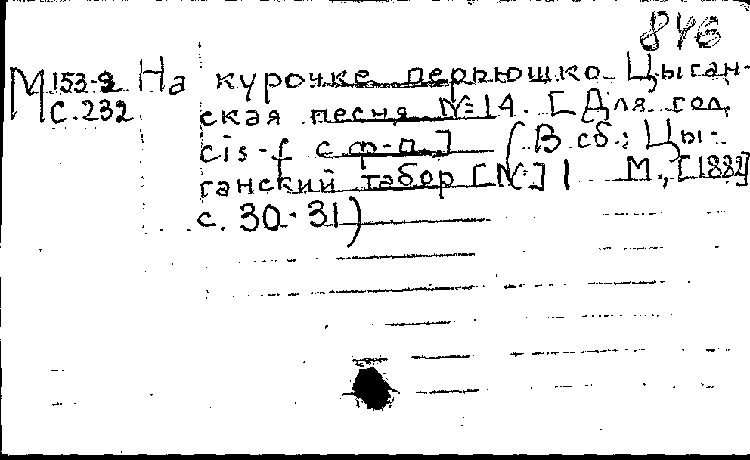 846
М 153-9 На курочке перьюшко. Цыган-
С. 232 ская песня № 14. [Для гол.
cis-f с ф-п.] (В сб.: Цы-
ганский табор [№] 1 М., [1882]
с. 30-31)